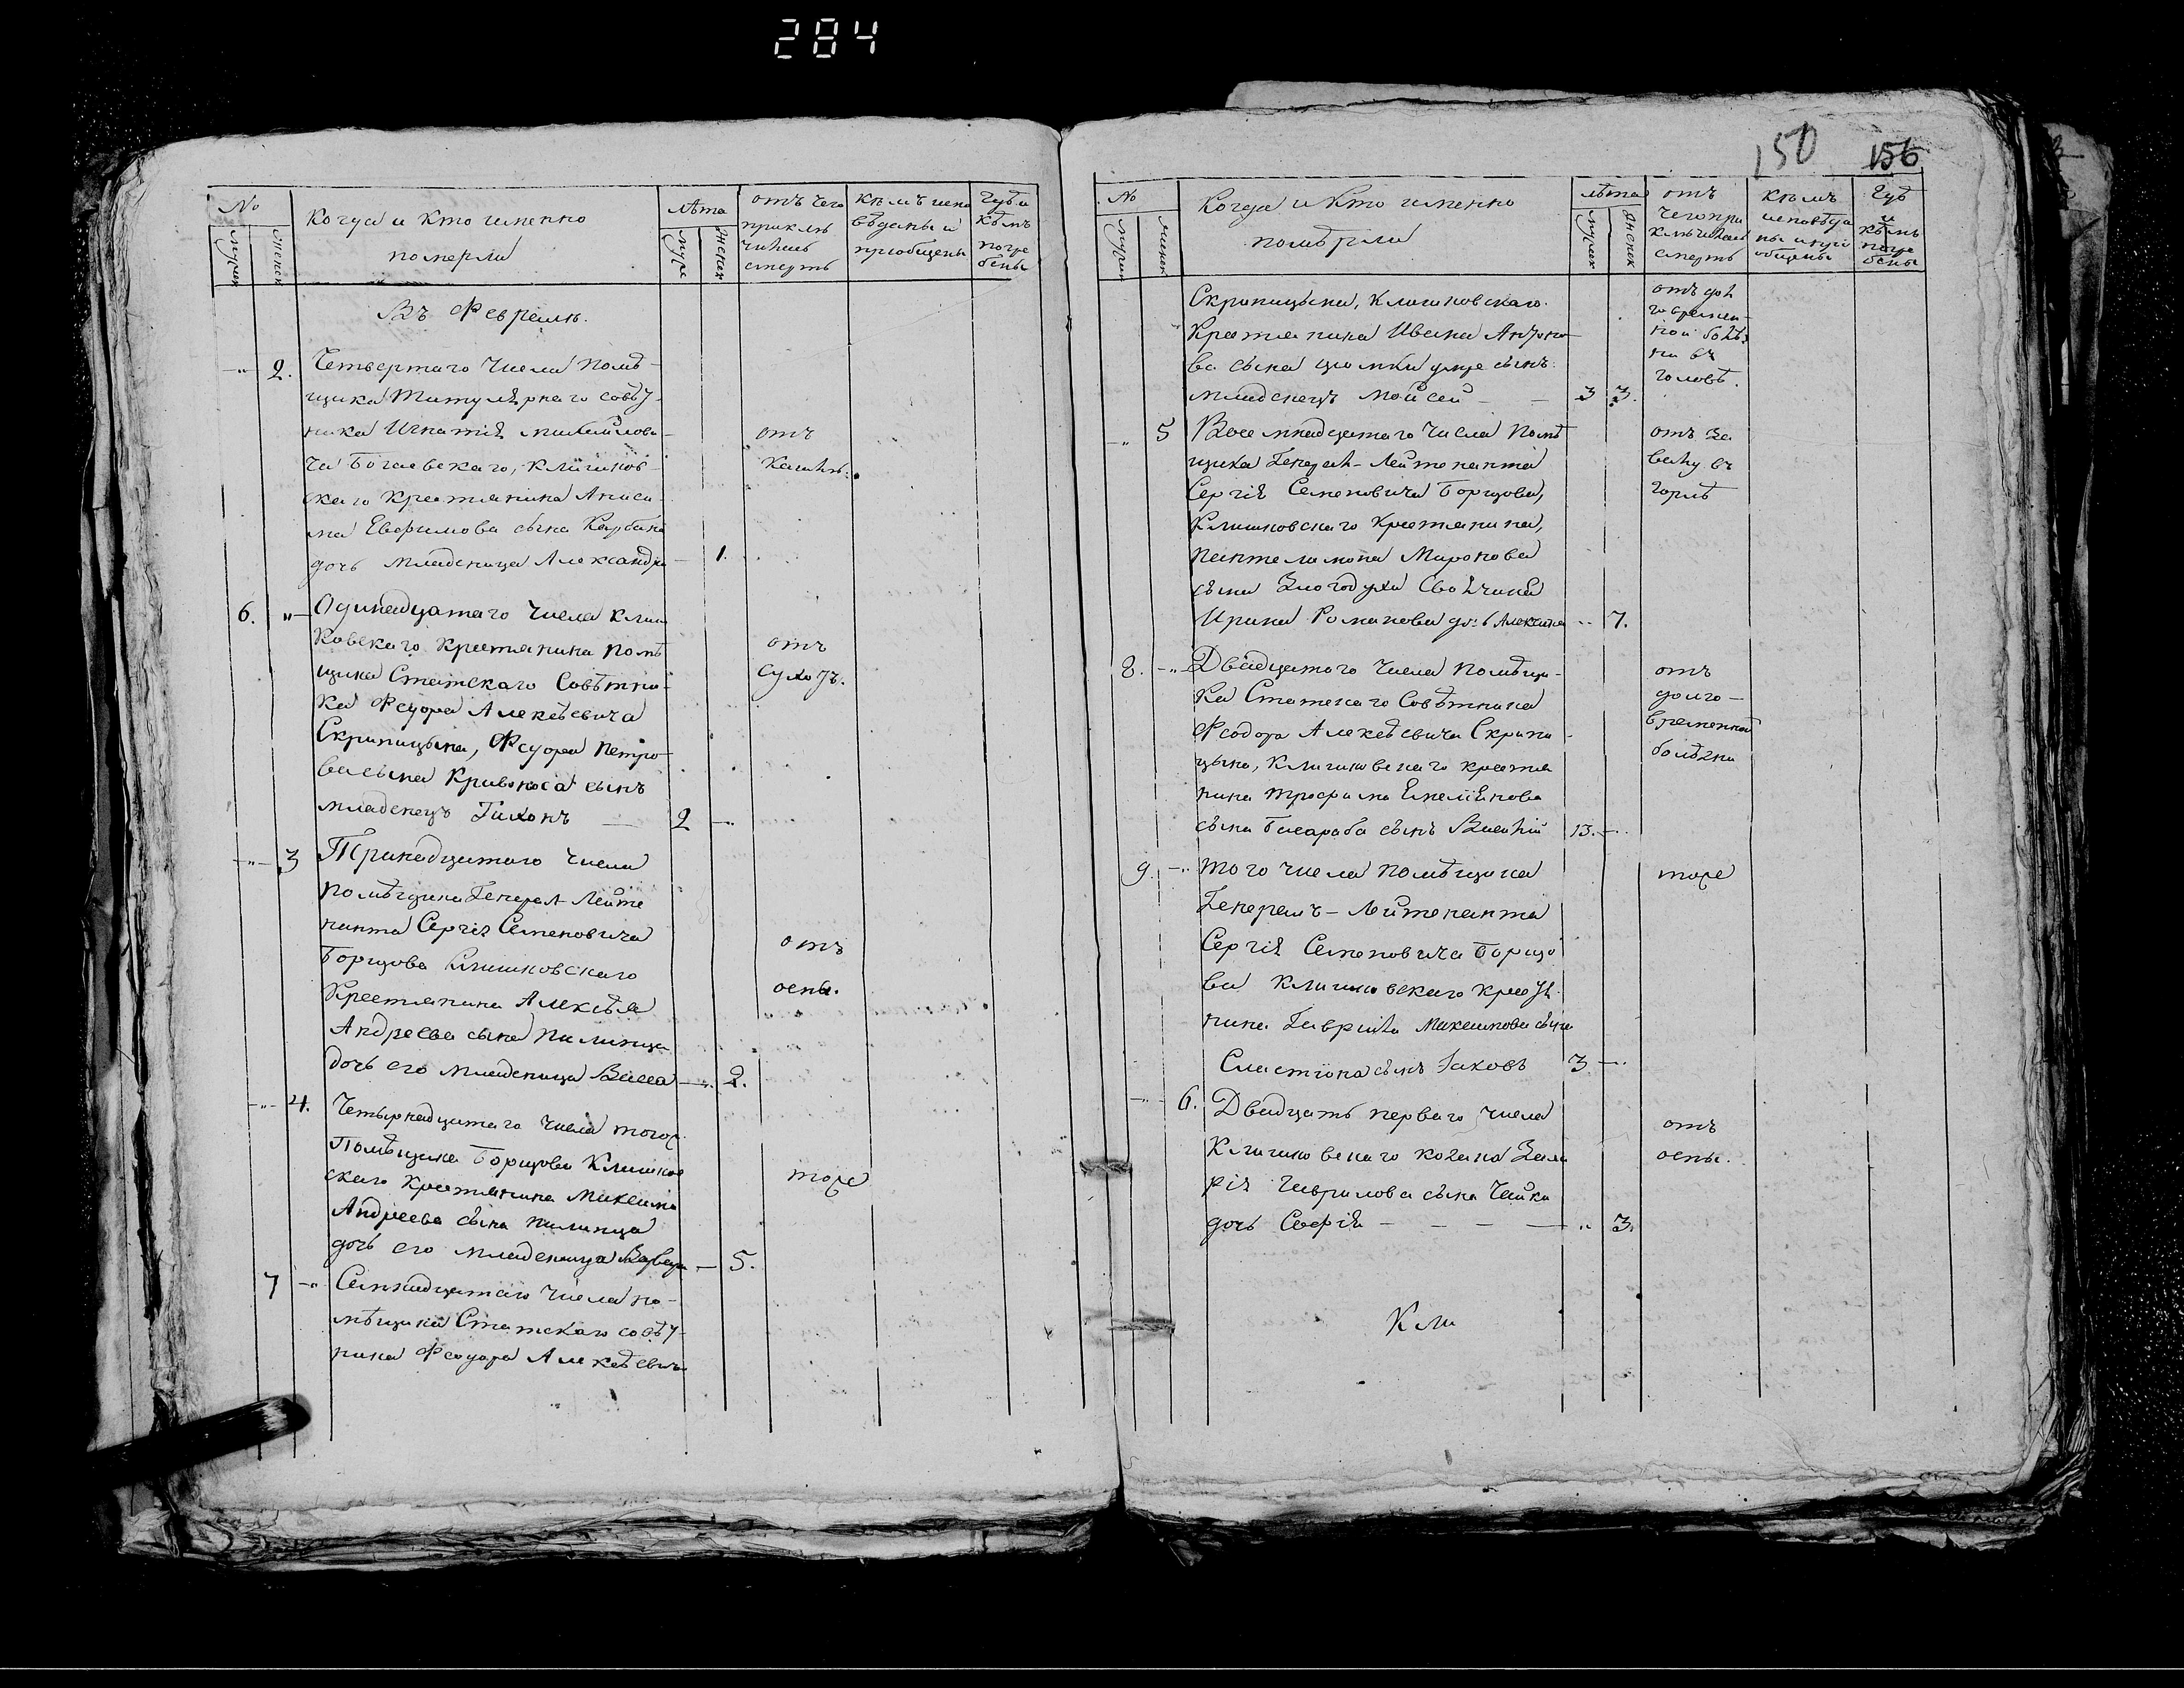 284
150 156
No
мужск женск
когда и кто именно
померли
лѣта
муже женск
отъ чего
приклю
чилась
смерть
кѣмъ испо
вѣданы и
пріобщены
Гдѣ и
кѣмъ
погре
бены
Въ Февралѣ.
2. Четвертаго числа помѣ-
щика Титулярнаго совѣт-
ника Игнатія Михайлови-
ча Богаевскаго, клишков-
скаго крестьянина Аниси-
ма Евфимова сына
дочь младеница Александра 1.
отъ
кашля.
6. Одинадцатаго числа клиш
ковскаго крестьянина помѣ
щика Статскаго Совѣтни-
ка Феодора Алексѣевича
Скрипицына, Феодора Петро-
ва сына Кривоноса сынъ
младенецъ Тихонъ 2
отъ
сухотъ.
3 Тринадцатаго числа
помѣщика Генерал-Лейте
нанта Сергія Семеновича
Борщова Клишковскаго
Крестьянина Алексѣя
Андреева сына Пилипца
дочь его младеница Васса 2.
отъ
оспы.
4. Четырнадцатаго числа тогож
Помѣщика Борщова Клишков
скаго крестьянина Максима
Андреева сына Пилипца
дочь его младеница Варвара 5.
тоже
7 Семнадцатаго числа по-
мѣщика Статскаго совѣт-
ника Феодора Алексѣевича
No
мужск женск
Когда и кто именно
помѣрли
лѣта
мужск женск
отъ
чего при
ключилась
смерть
кѣмъ
исповѣда
ны и прі
общены
Гдѣ
и
кѣмъ
погре
бены
Скрипицына, Клишковскаго
Крестьянина Ивана Антоно-
ва сына сынъ
младенецъ Мойсей 3 3.
отъ дол
говремен-
ной болѣз
ни въ
головѣ.
5 Восемнадцатаго числа помѣ
щика Генерал-Лейтенанта
Сергія Семеновича Борщова,
Клишковскаго Крестьянина,
Пантелимона Миронова
сына Злогодуха
Ирина Романова дочь 7.
отъ за
валу въ
горлѣ
8. Двадцатаго числа помѣщи-
ка Статскаго Совѣтника
Феодора Алексѣевича Скрипи-
цына, Клишковскаго крестья
нина Трофима Емеліянова
сына Басараба сынъ Василій 13.
отъ
долго-
временной
болѣзни
9. того числа помѣщика
Генералъ-Лейтенанта
Сергія Семеновича Борщо
ва Клишковскаго крестья
нина Гавриила Максимова сына
Сластіона сынъ Іаковъ 3
тоже
6. Двадцать перваго числа
Клишковскаго козака Заха
рія Гаврилова сына Чайки
дочь Софія 3.
отъ
оспы.
Кли